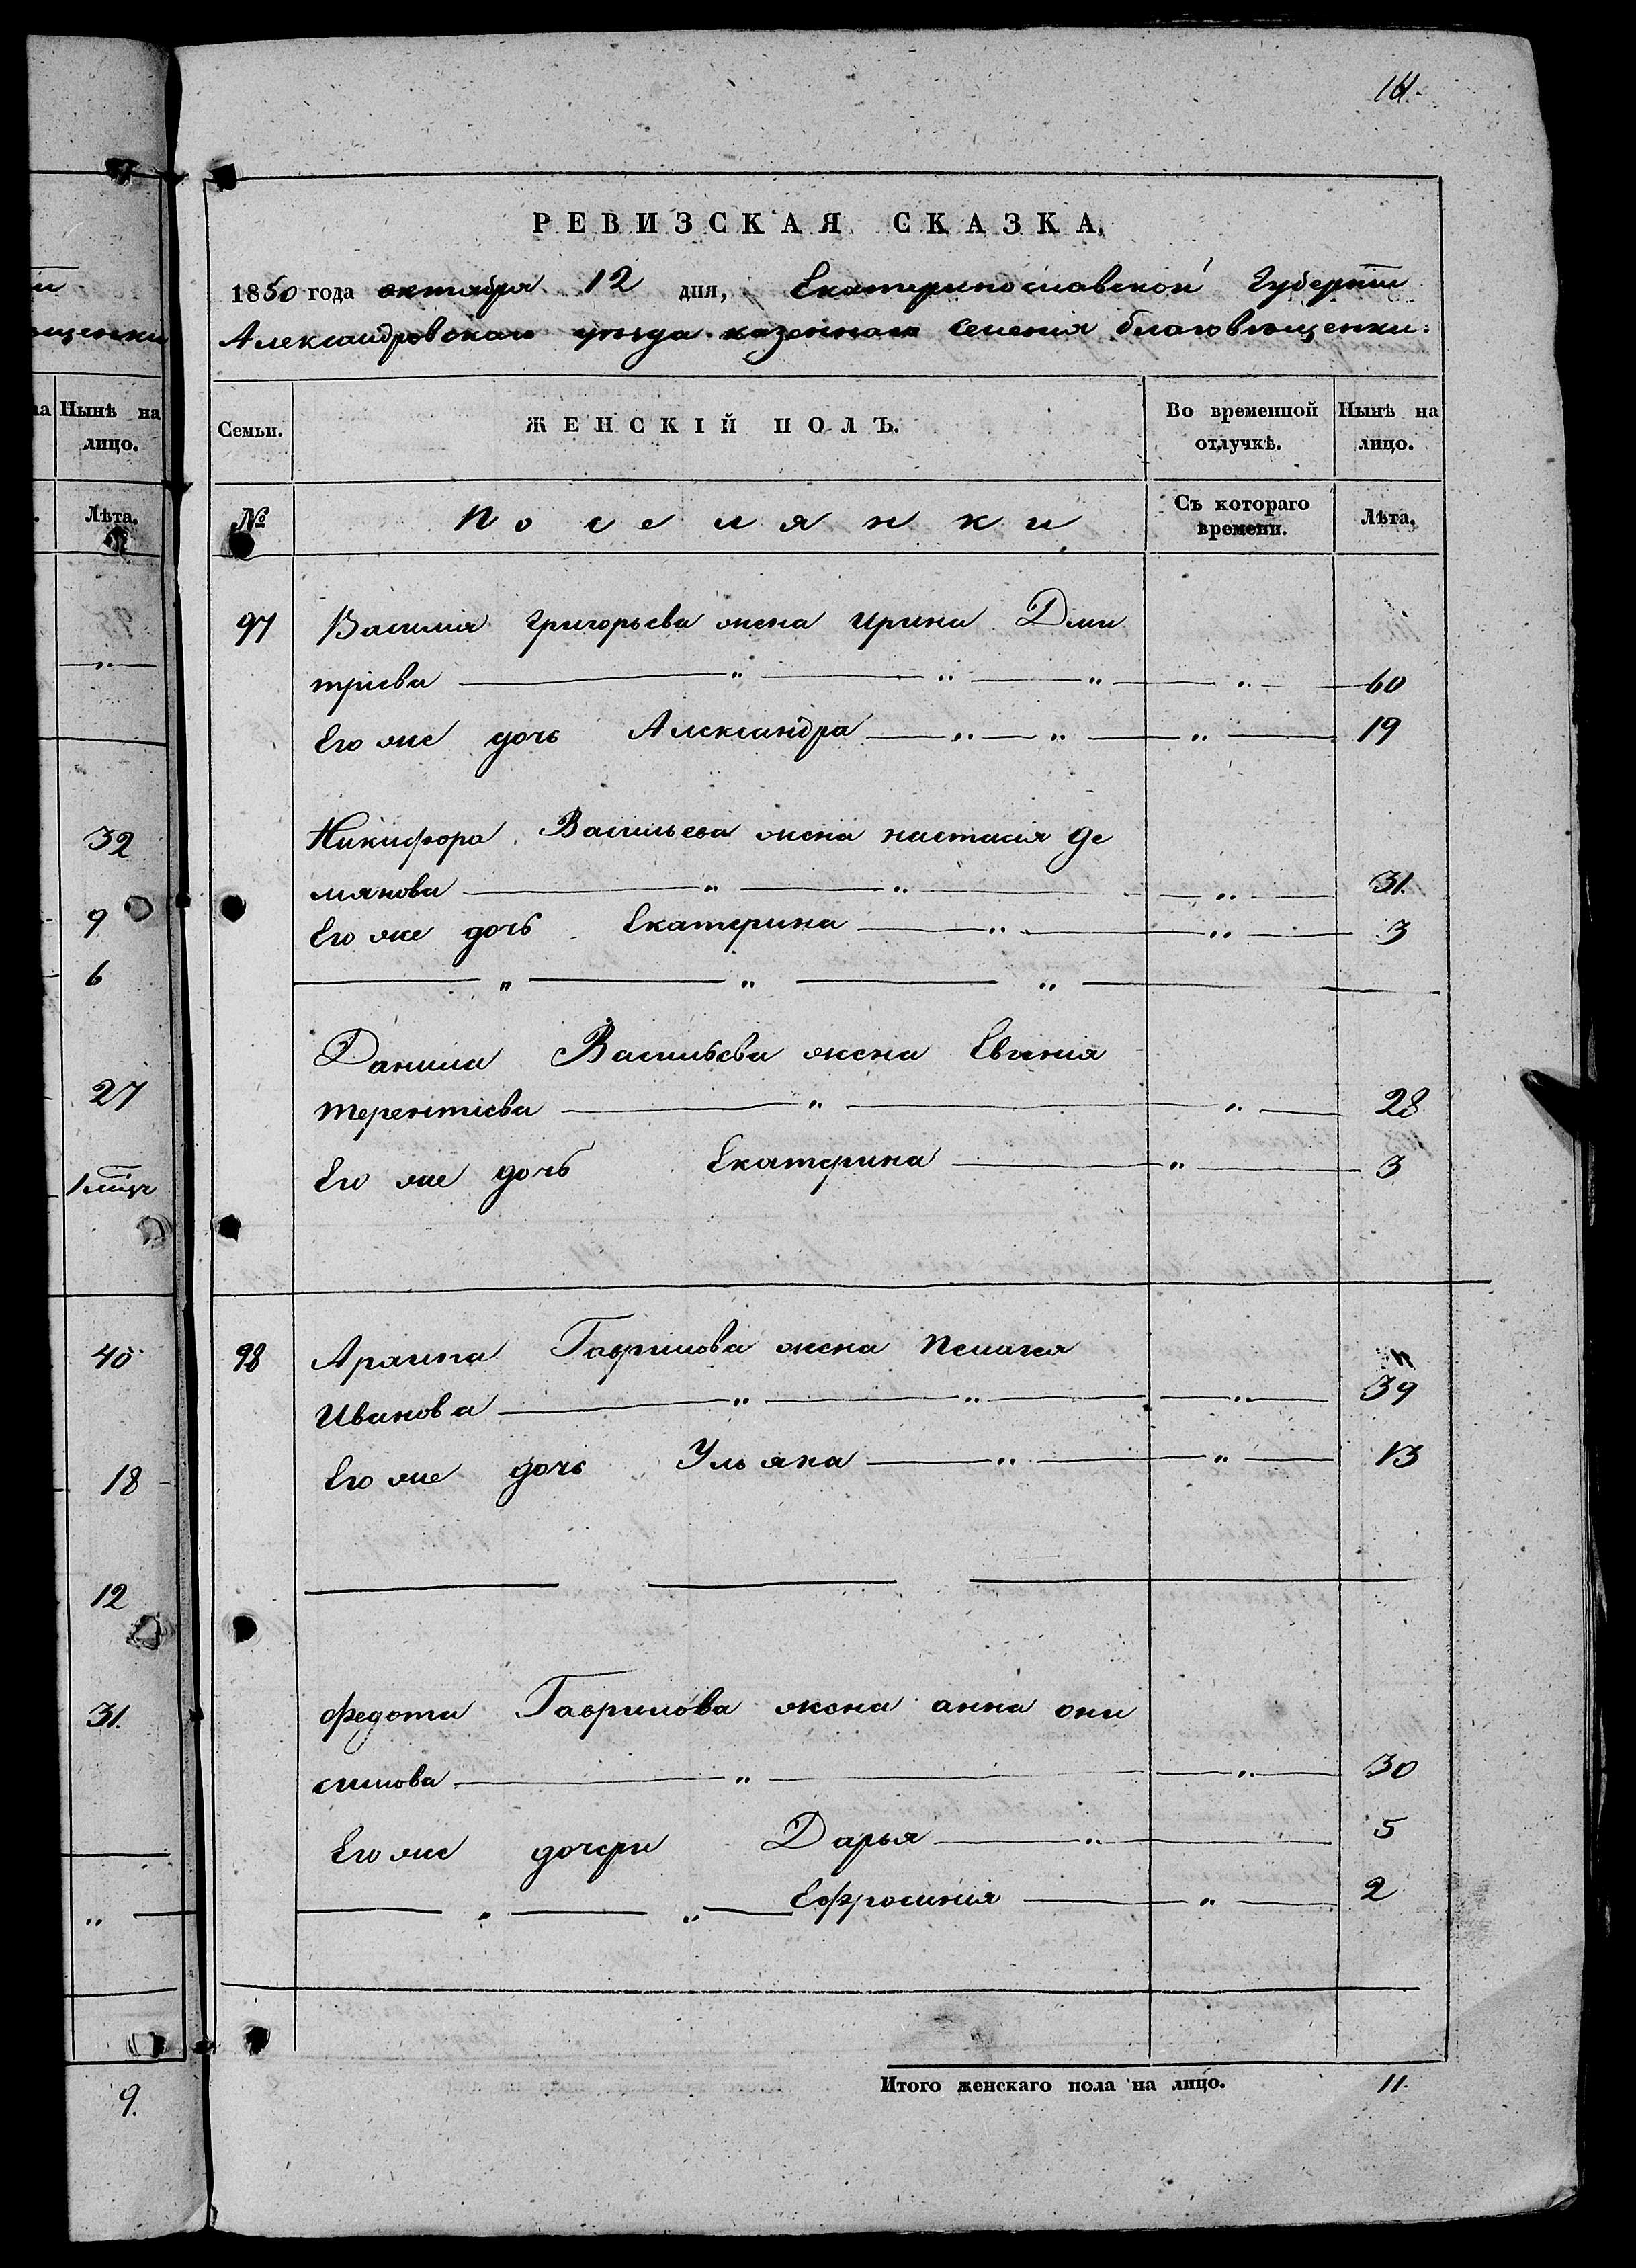 ги
ощенки
на Нынѣ на
лицо.
Лѣта.
32
9
6
27
40
18
12
31.
9.
161.
РЕВИЗСКАЯ СКАЗКА,
1850 года октября 12 дня, Екатеринославской Губерніи
Александровскаго уѣзда казеннаго Селенія благовѣщенки:
Семьи.
ЖЕНСКІЙ ПОЛЪ.
Во временной
отлучкѣ.
Нынѣ на
лицо.
№
Поселянки
Съ котораго
времени.
Лѣта.
97 Василія Григорьева жена Ирина Дми
тріева — " — " — " — " — 60
Его же дочь Александра — " — " — " — 19
Никифора Васильева жена настасія де
мянова — " — " — " — 31.
Его же дочь Екатерина — " — " — 3
— " — " — " —
Данила Васильева жена Евгенія
терентіева — " — " — 28
Его же дочь Екатерина — " — 3
98 Архипа Гаврилова жена пелагея
Иванова — " — " — " — 39
Его же дочь Ульяна — " — " — 13
федота Гаврилова жена анна они
симова — " — " — 30
Его же дочери Дарья — " — 5
— " — " — Ефросинія — " — 2
Итого женскаго пола на лицо. 11.